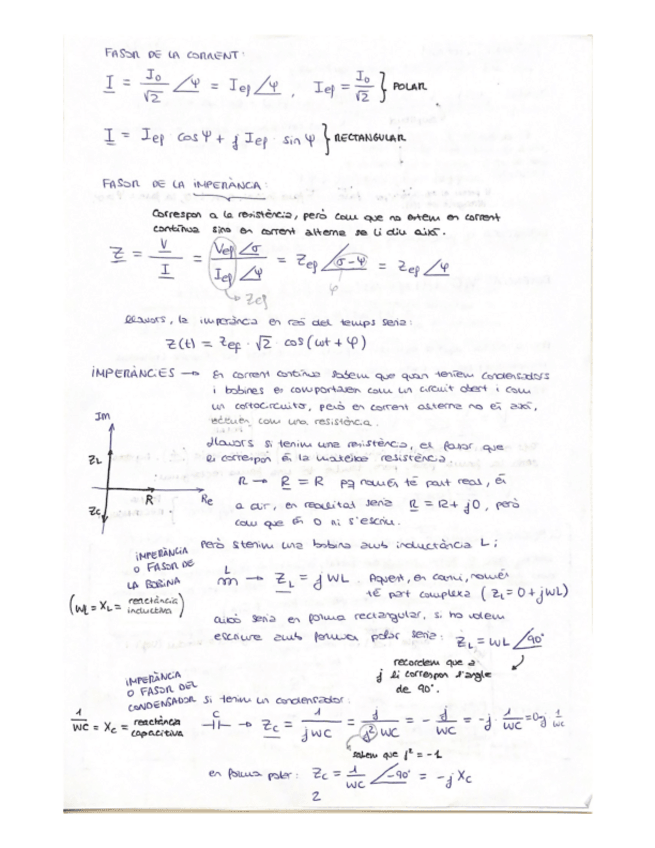 FASOR DE LA CORRENT:
I = I₀/√2 ∠φ = Ief ∠φ , Ief = I₀/√2 } POLAR
I = Ief · cos φ + j Ief · sin φ } RECTANGULAR
FASOR DE LA IMPERÀNCA:
Correspon a la resistència, però com que no estem en corrent
contínua sino en corrent alterna se li diu això.
Z = V/I = Vef ∠σ / Ief ∠φ = Zef ∠σ-φ = Zef ∠φ
φ
→ Zef
Llavors, la imperància en raó del temps seria:
Z(t) = Zef · √2 · cos(ωt + φ)
IMPERÀNCIES → En corrent continua sabem que quan teniem condensadors
i bobines es comportaven com un circuit obert i com
un cortocircuito, però en corrent alterna no és així,
actuen com una resistència.
Jm
ZL
R
Re
Zc
Llavors si tenim una resistència, el fasor que
li correspon és la mateixa resistència.
R → R = R pq només té part real, és
a dir, en realitat seria R = R + j0, però
com que és 0 ni s'escriu.
Però si tenim una bobina amb inductància L;
IMPERÀNCIA
O FASOR DE
LA BOBINA
(WL = XL = reactància inductiva)
L → ZL = j WL. Aquest, en canvi, només
té part complexa (ZL = 0 + jWL)
això seria en forma rectangular, si ho volem
escriure amb forma polar seria: ZL = WL ∠90°
recordem que a
j li correspon l'angle
de 90°.
IMPERÀNCIA
O FASOR DEL
CONDENSADOR
Si tenim un condensador:
1/WC = Xc = reactància capacitiva
C → Zc = 1/jWC = j/j²WC = - j/WC = -j · 1/WC = 0-j 1/WC
sabem que j² = -1
en forma polar: Zc = 1/WC ∠-90° = -j Xc
2